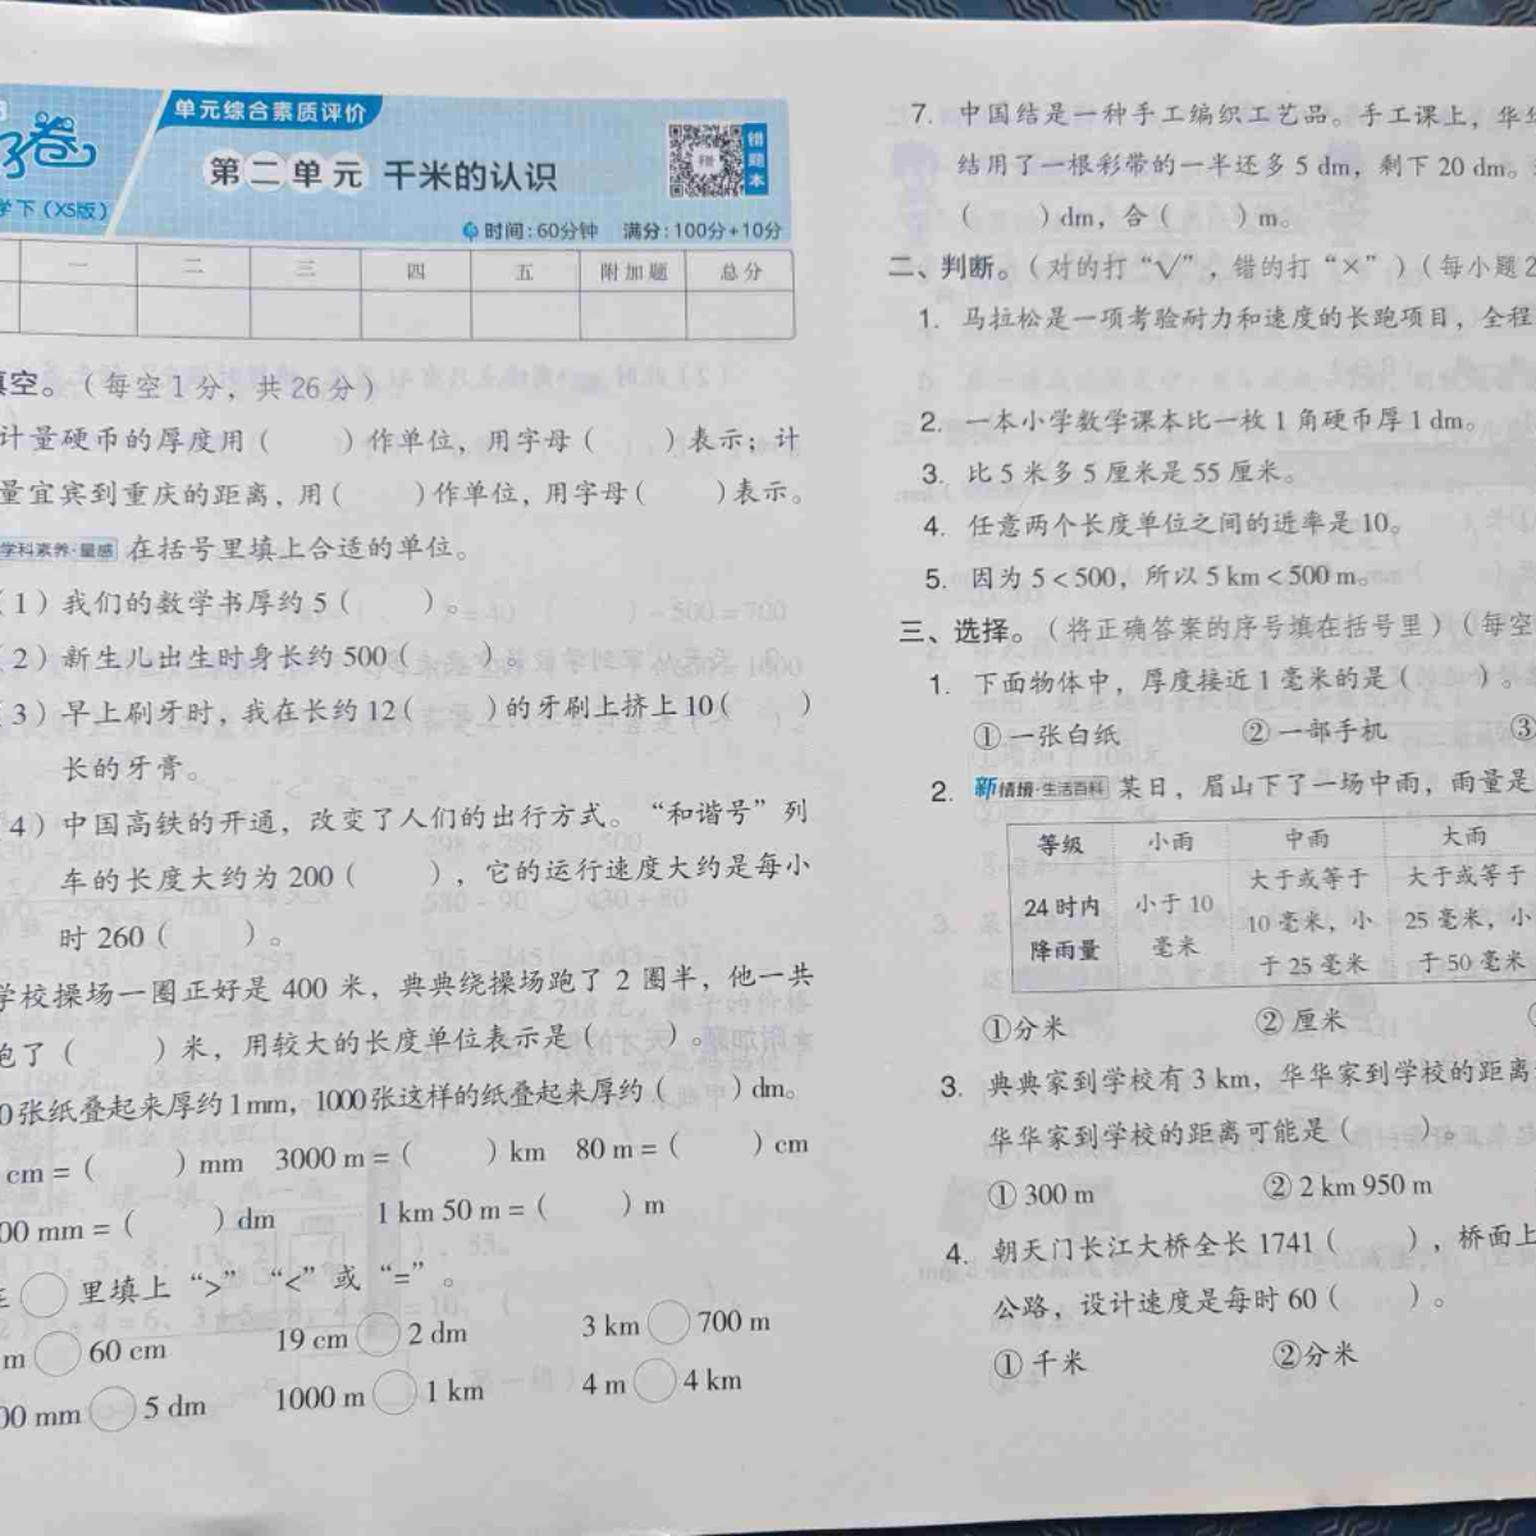 单元综合素质评价
第二单元 千米的认识
错题本
学下(XS版)
时间:60分钟 满分:100分+10分
一 二 三 四 五 附加题 总分
填空。(每空1分,共26分)
计量硬币的厚度用( )作单位,用字母( )表示;计
量宜宾到重庆的距离,用( )作单位,用字母( )表示。
学科素养·量感 在括号里填上合适的单位。
(1)我们的数学书厚约5( )。
(2)新生儿出生时身长约500( )。
(3)早上刷牙时,我在长约12( )的牙刷上挤上10( )
长的牙膏。
(4)中国高铁的开通,改变了人们的出行方式。“和谐号”列
车的长度大约为200( ),它的运行速度大约是每小
时260( )。
学校操场一圈正好是400米,典典绕操场跑了2圈半,他一共
跑了( )米,用较大的长度单位表示是( )。
0张纸叠起来厚约1mm,1000张这样的纸叠起来厚约( )dm。
cm=( )mm 3000 m=( )km 80 m=( )cm
00 mm=( )dm 1 km 50 m=( )m
在○里填上“>”“<”或“=”。
m○60 cm 19 cm○2 dm 3 km○700 m
00 mm○5 dm 1000 m○1 km 4 m○4 km
7. 中国结是一种手工编织工艺品。手工课上,华华
结用了一根彩带的一半还多5 dm,剩下20 dm。
( )dm,合( )m。
二、判断。(对的打“√”,错的打“×”)(每小题2
1. 马拉松是一项考验耐力和速度的长跑项目,全程
2. 一本小学数学课本比一枚1角硬币厚1 dm。
3. 比5米多5厘米是55厘米。
4. 任意两个长度单位之间的进率是10。
5. 因为5<500,所以5 km<500 m。
三、选择。(将正确答案的序号填在括号里)(每空
1. 下面物体中,厚度接近1毫米的是( )。
①一张白纸 ②一部手机 ③
2. 新情境·生活百科 某日,眉山下了一场中雨,雨量是
等级 小雨 中雨 大雨
24时内降雨量 小于10毫米 大于或等于10毫米,小于25毫米 大于或等于25毫米,小于50毫米
①分米 ②厘米
3. 典典家到学校有3 km,华华家到学校的距离
华华家到学校的距离可能是( )。
①300 m ②2 km 950 m
4. 朝天门长江大桥全长1741( ),桥面上
公路,设计速度是每时60( )。
①千米 ②分米